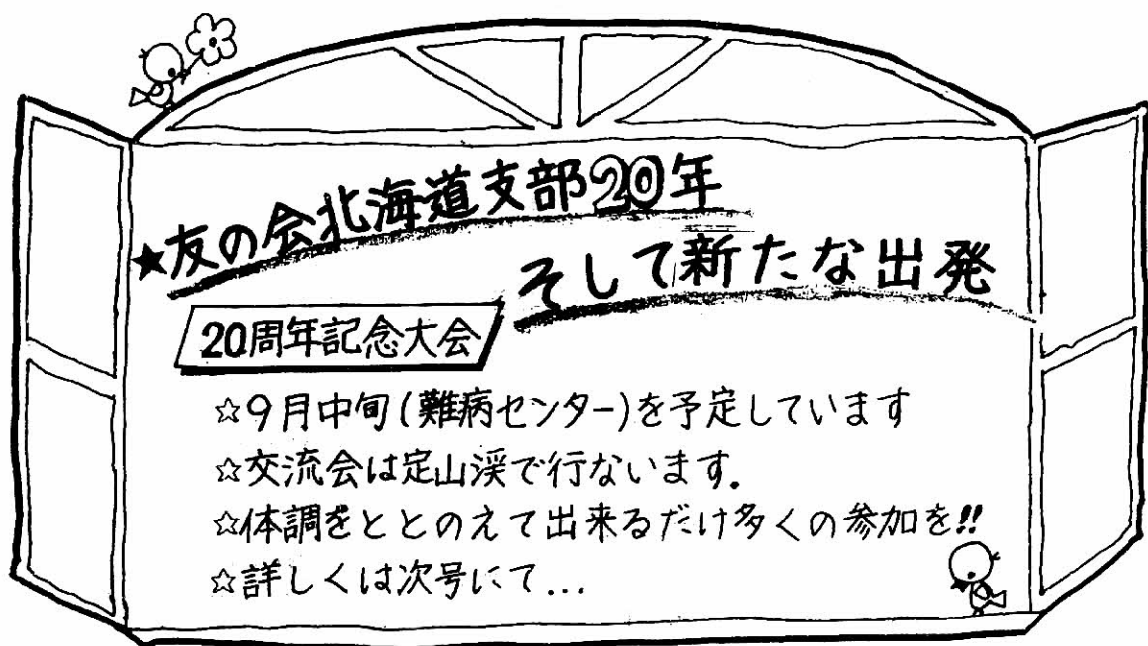 ★友の会北海道支部20年
そして新たな出発
20周年記念大会
☆9月中旬(難病センター)を予定しています
☆交流会は定山渓で行ないます.
☆体調をととのえて出来るだけ多くの参加を!!
☆詳しくは次号にて...